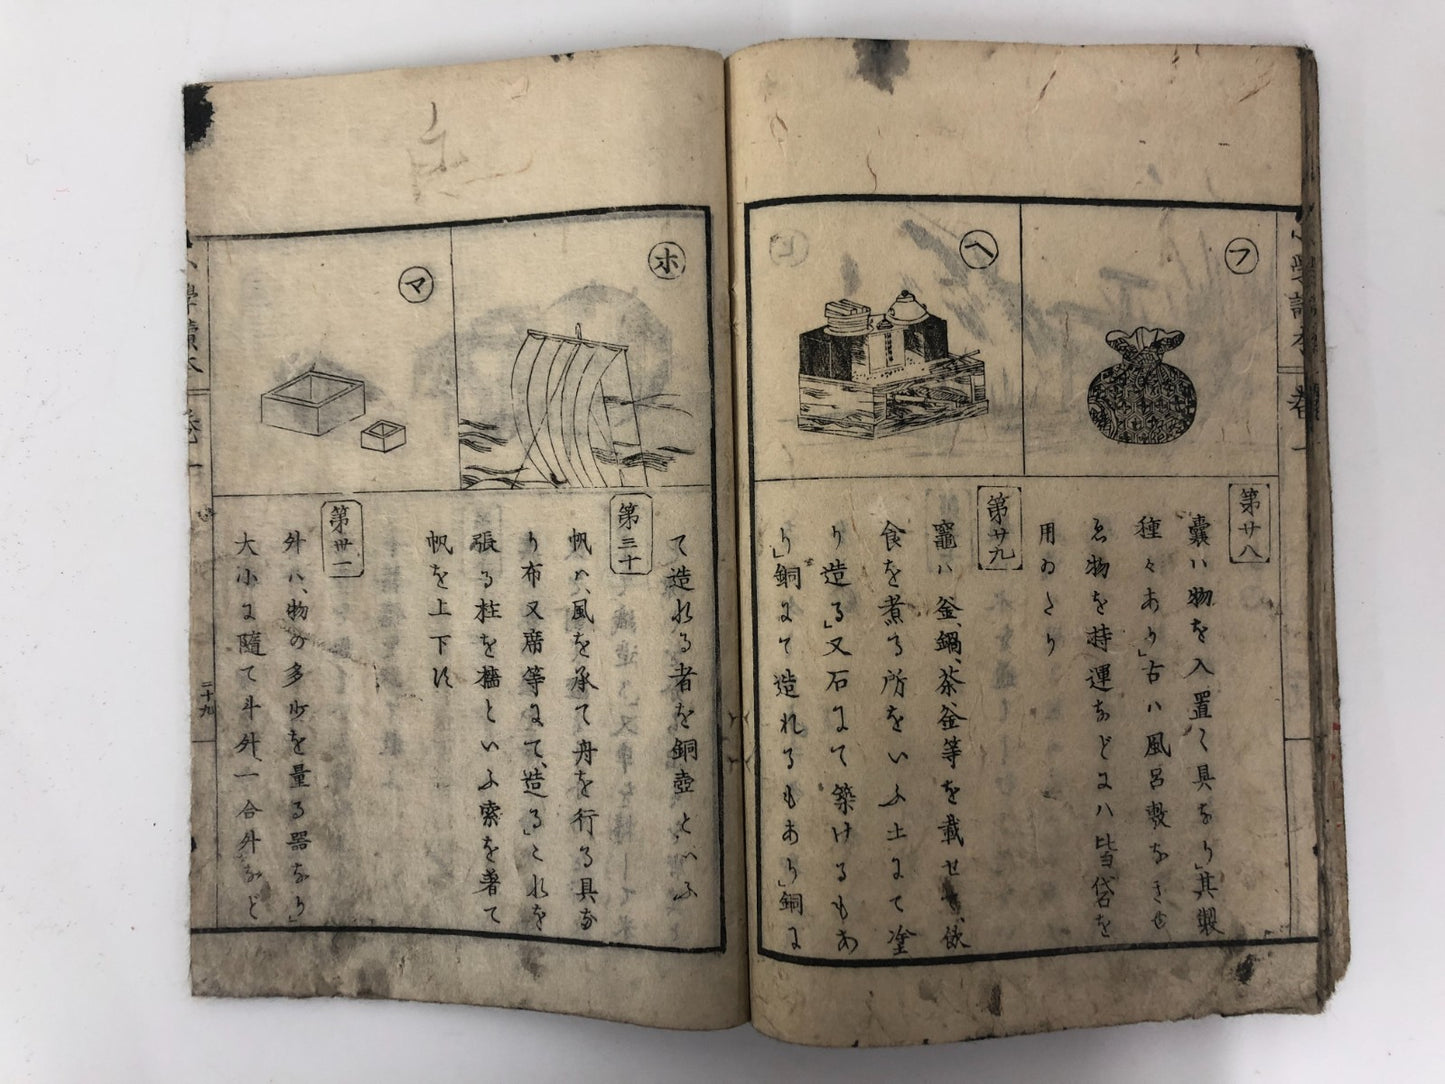 フ
ヘ
第廿八
嚢ハ物を入置く具なり」其製
種々あり」古ハ風呂敷なきゆ
ゑ物を持運ぶなどにハ皆袋を
用ゐたり
第廿九
竈ハ釜、鍋、茶釜等を載せて、飲
食を煮る所をいふ土にて塗
り造る」又石にて築けるもあ
り」銅にて造れるもあり」銅に
小學讀本
卷一
ホ
マ
て造れる者を銅壺といふ
第三十
帆ハ、風を承て舟を行る具な
り布又席等にて、造る」これを
張る柱を檣といふ索を著て
帆を上下す
第卅一
升ハ、物の多少を量る器なり」
大小に隨て斗升一合升など
小學讀本
卷一
二十九